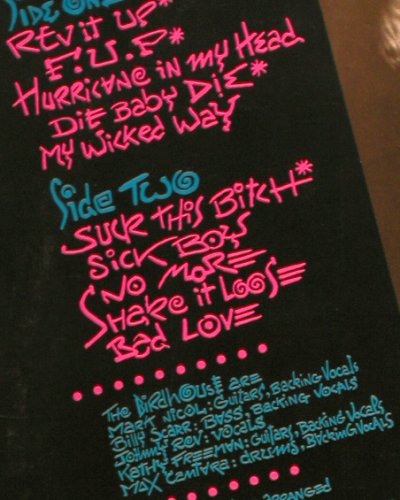 Side One
Rev it Up*
F.U.P*
Hurricane in my Head
Die Baby Die*
My Wicked Way
Side Two
Suck this Bitch*
Sick Boys
No More
Shake it Loose
Bad Love
The Birdhouse are
Mark Nicol: Guitars, Backing Vocals
Billy Starr: Bass, Backing Vocals
Johnny Rev: Vocals
Kathy Freeman: Guitars, Backing Vocals
Max Centara: drums, Backing Vocals
Arranged